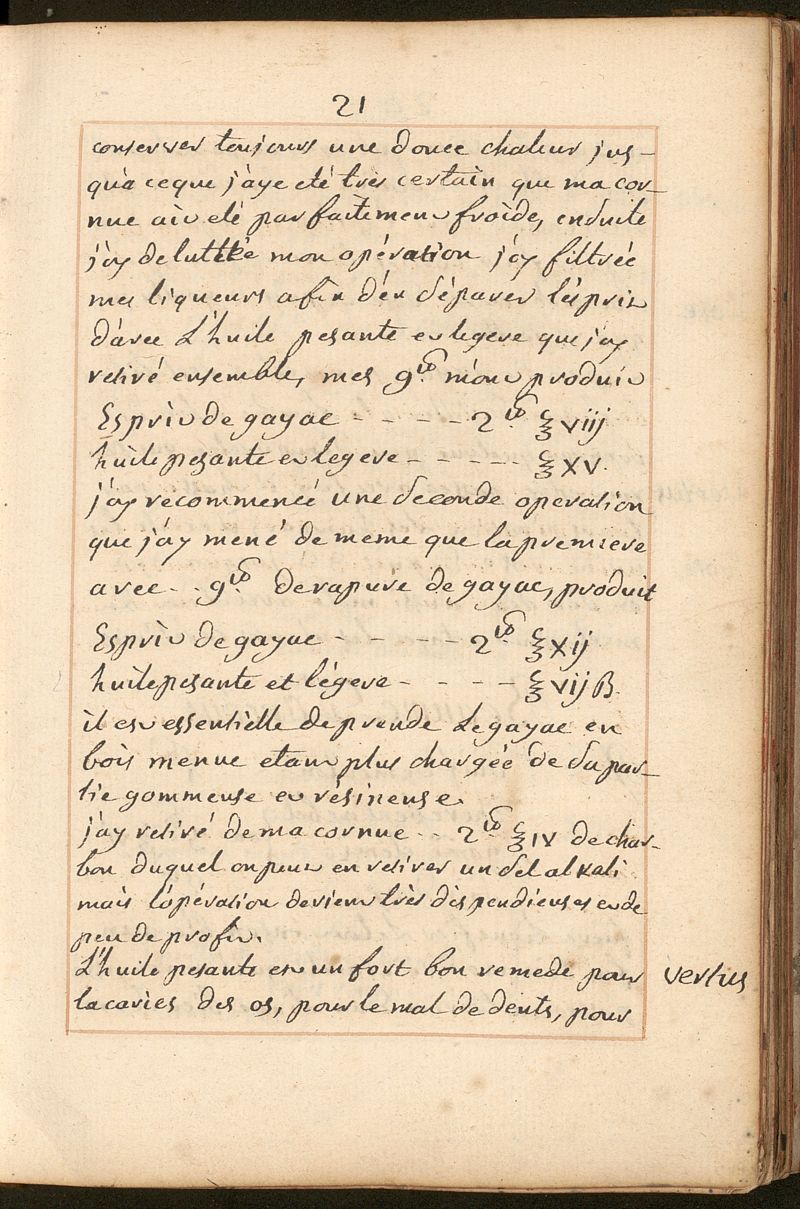 21
conserver toujours une douce chaleur jus-
qu'a ceque j'aye eté très certain que ma cor-
nue ait eté parfaitement froide, ensuite
j'ay delutté mon opération j'ay filtrée
mes liqueurs afin d'en séparer l'ésprit
d'avec L'huile pesante et legere que j'ay
retiré ensemble, mes 9 ℔. m'ont produit
Esprit de gayac - - - - - 2 ℔. ℥ xviij
huile pesante et legere - - - - - ℥ XV.
j'ay recommencé une seconde operation
que j'ay mené de meme que la premiere
avec - - 9 ℔. de rapure de gayac, produit
Esprit de gayac - - - - - 2 ℔. ℥ Xij
huile pesante et légere - - - - - ℥ vij ß.
il est essentielle de prende Le gayac en
bois menue etant plus chargée de sa par-
tie gommeuse et résineuse.
j'ay retiré de ma cornue - - 2 ℔ ℥ IV de char-
bon duquel on peut en retirer un sel alkali
mais l'opération devient très dispendieuses et de
peu de profit.
L'huile pesante est un fort bon remede pour vertus
la caries des os, pour le mal de dents, pour